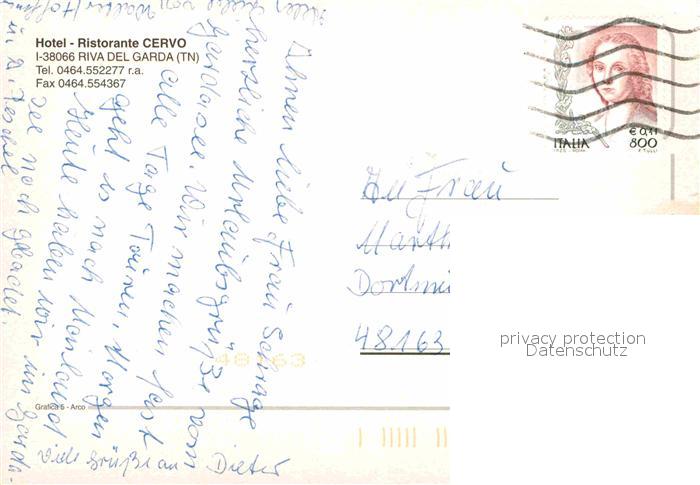 Hotel - Ristorante CERVO
I-38066 RIVA DEL GARDA (TN)
Tel. 0464.552277 r.a.
Fax 0464.554367
Ihnen liebe Frau
herzliche Urlaubsgrüße vom
Gardasee. Wir machen fast
alle Tage Touren, Morgen
geht es nach Mailand
Heute haben wir im Garda-
see noch gebadet.
Viele Grüße an Dieter
ITALIA
€ 0,41
800
An Frau
Marth
Dortmu
48163
48163
privacy protection
Datenschutz
Grafica 5 - Arco